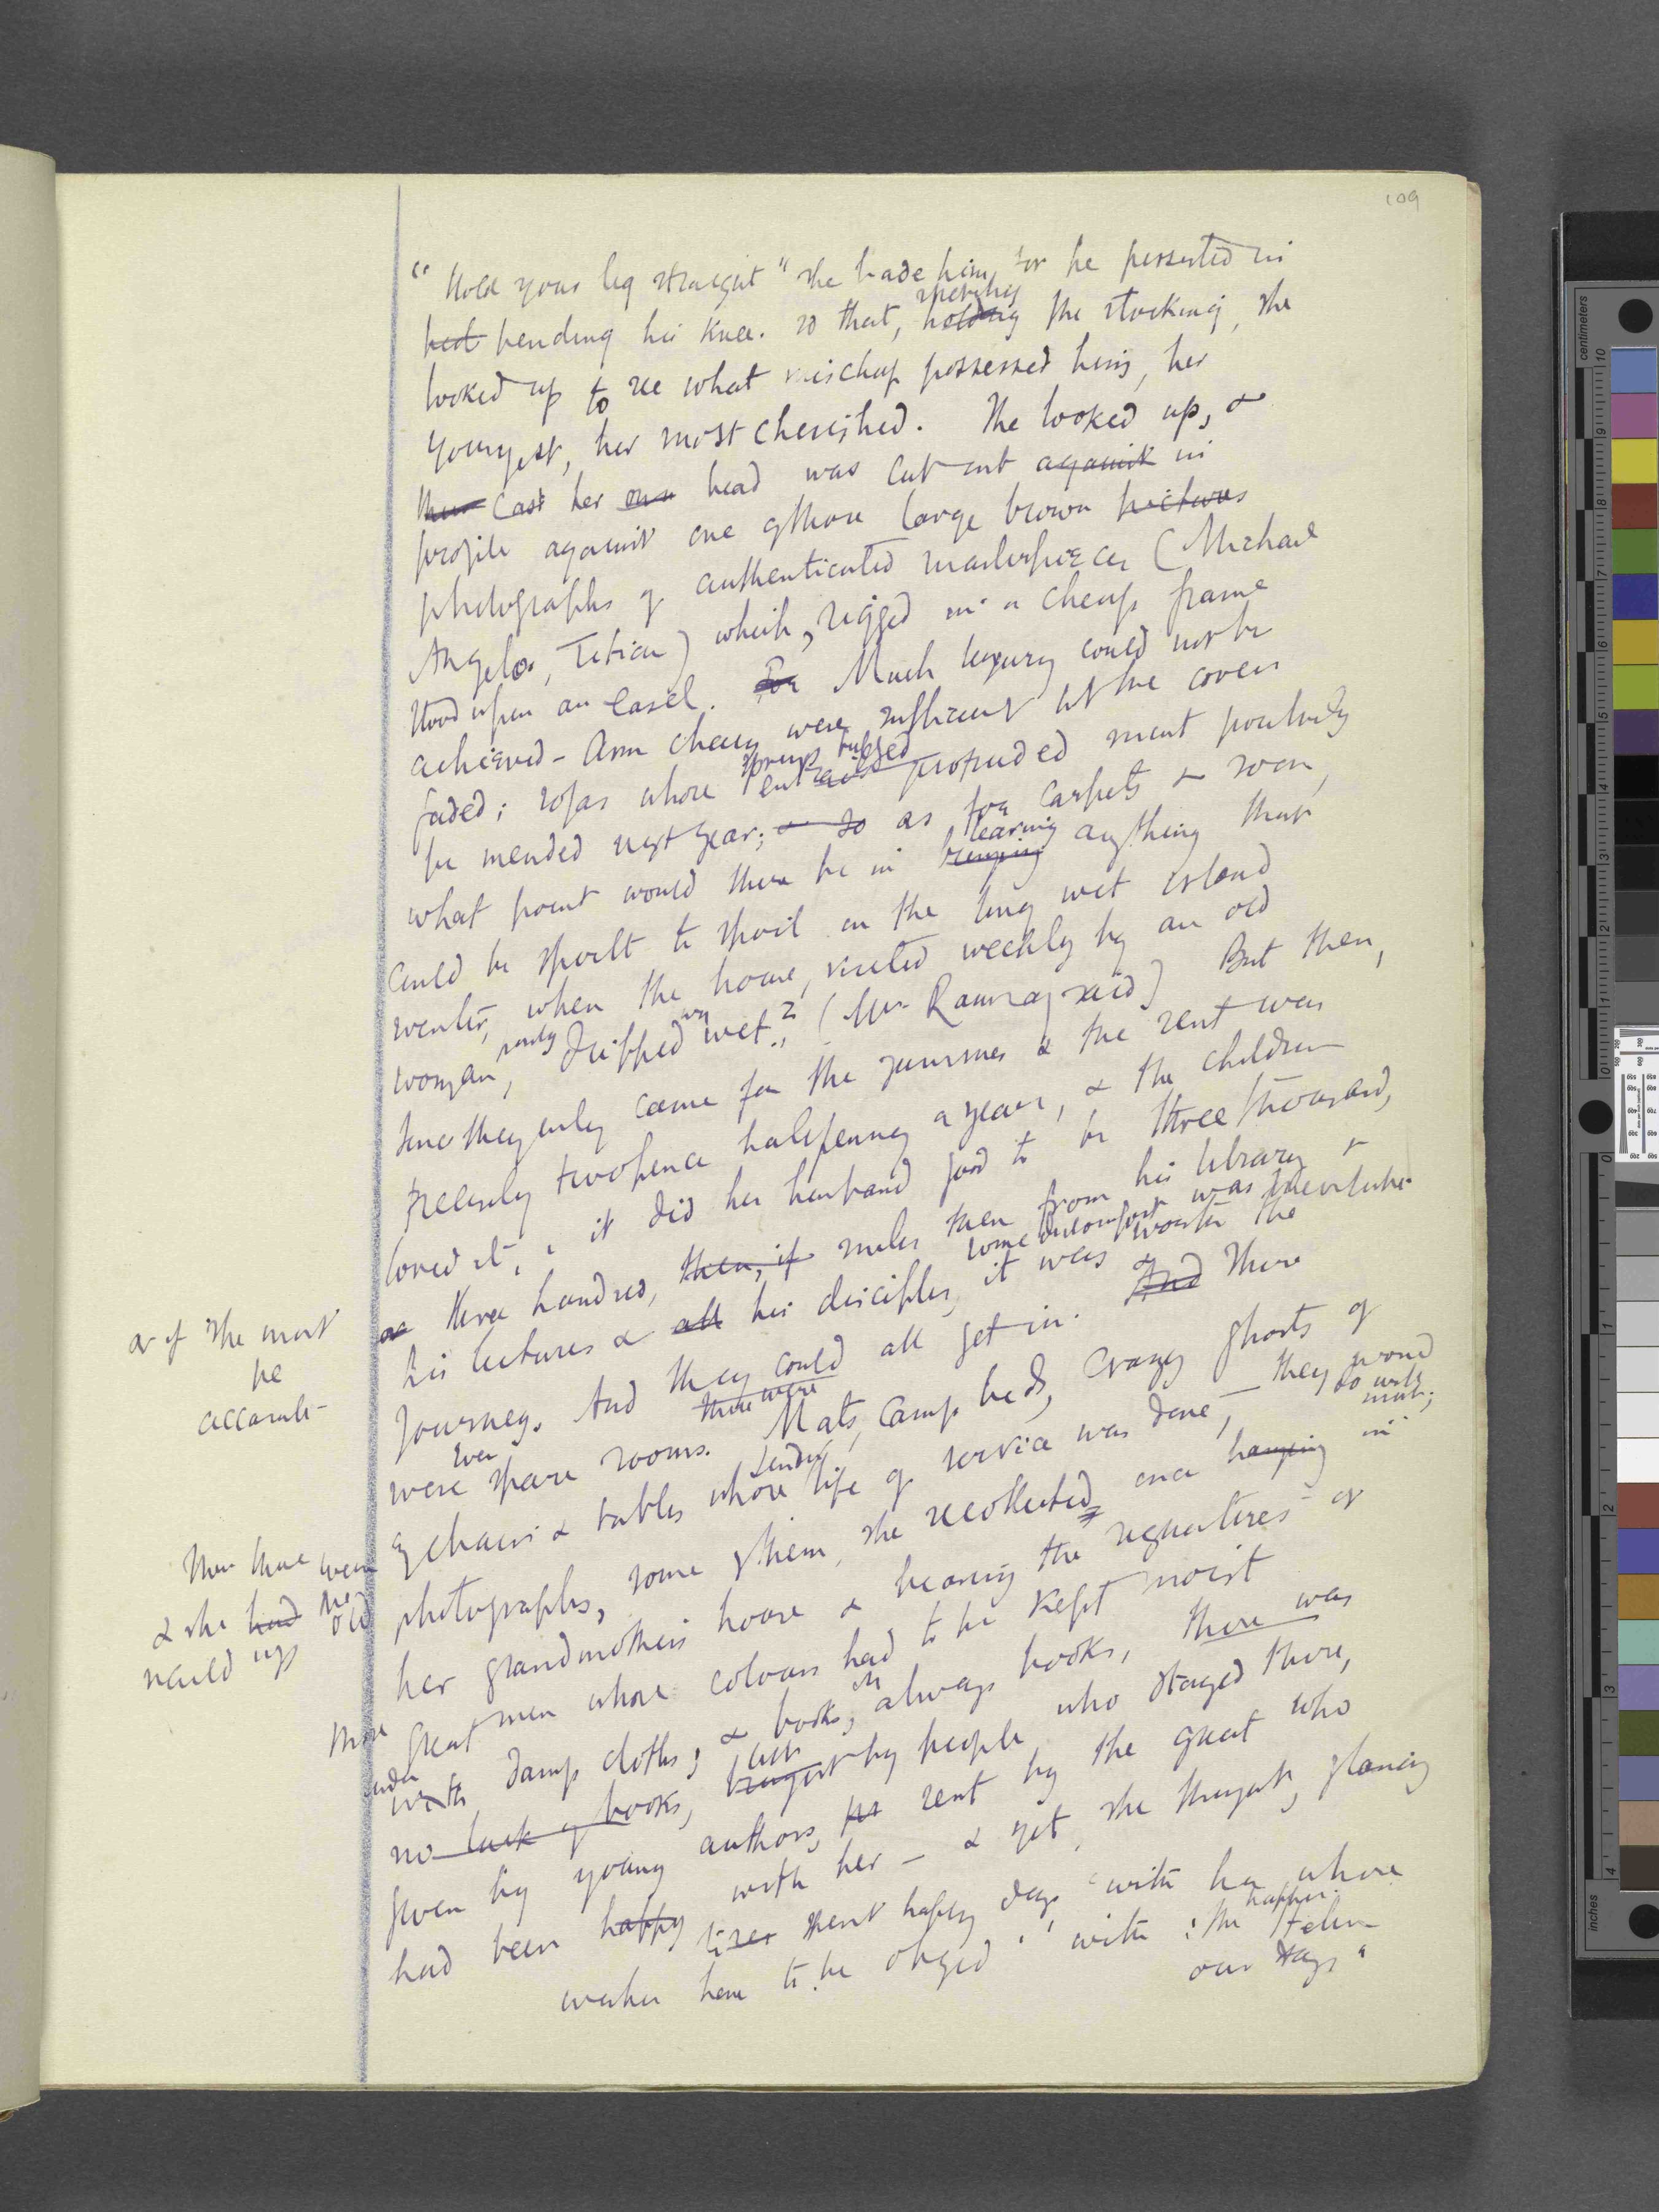 109
"Hold your leg straight" she bade him, for he persisted in
bending his knee. so that, stretching holding the stocking, she
looked up to see what mischief possessed him, her
youngest, her most cherished. She looked up, &
her head was cut out against in
profile against one of those large brown pictures
photographs of authenticated masterpieces (Michael
Angelo, Titian) which, rigged in a cheap frame
stood upon an easel. For Much luxury could not be
achieved - Arm chairs were sufficient let the covers
faded; sofas whose springs bulged entrails protruded must positively
be mended next year; & so as for carpets & soon,
what point would there be in leaving anything that
could be spoilt to spoil in the long wet island
winter, when the house, visited weekly by an old
woman, dripped wet? (Mrs Ramsay said) But then,
they only came for the summer & the rent was
precisely twopence halfpenny a year, & the children
loved it; & it did her husband good to be three thousand,
or if she must
be
accurate
three hundred, then, if miles from his library &
his lectures & all his disciples, some discomfort was inevitable it was worth the
journey. And they could all get in. And & There
were even spare rooms. there were Mats, camp beds, crazy ghosts of
chairs & tables whose London life of service was done, they would do with mats;
Then there were
& she had
up
photographs, some of them, she recollected once hanging in
her grandmother's house & bearing the signatures of
great men whose colours had to be kept moist
under with damp cloths; & books, always books, there was
no lack of books, left brought by people who stayed there,
given by young authors, sent by the great who
had been happy with her - & yet, she thought, glancing
spent happy days "with her whose
wishes have to be obeyed" "with "The happier Helen
our days"